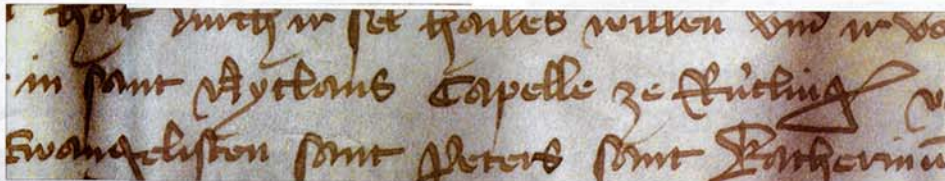 hat durch ir sel hailes willen vnd ir vo
in sant Nyclaus Capelle ze Rútling
Ewangelisten sant Peters sant Katherinū